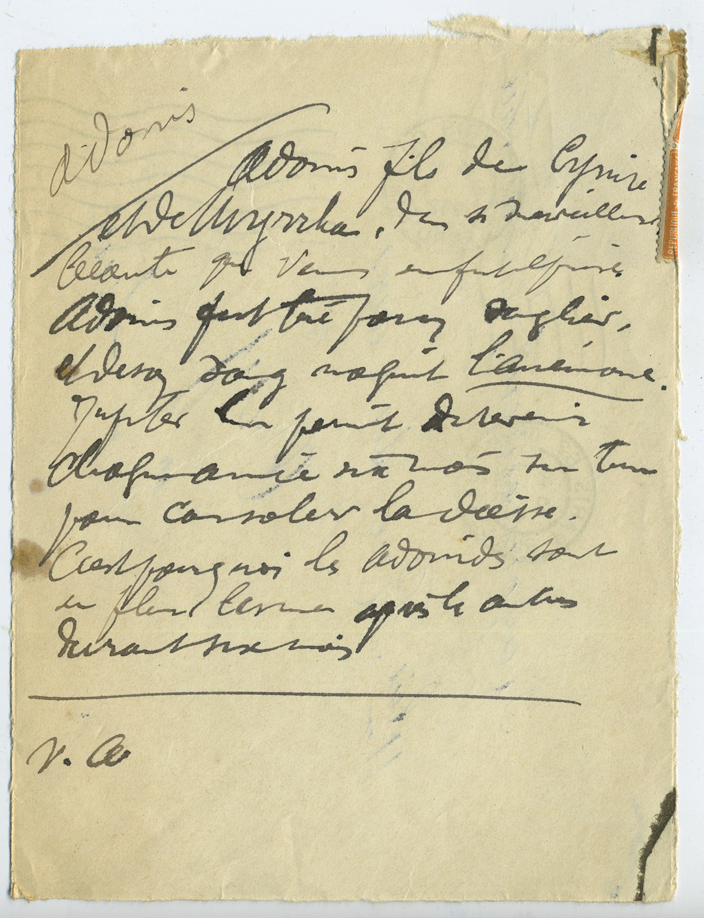 adonis
Adonis fils de Cynire
et de Myrrha, d'une si merveilleuse
beauté que Vénus en fut éprise.
Adonis fut tué par un sanglier,
et de son sang naquit l'anémone.
Jupiter lui permit de revenir
chaque année six mois sur terre
pour consoler la déesse.
C'est pourquoi les adonides sont
en fleur après les autres
durant six mois